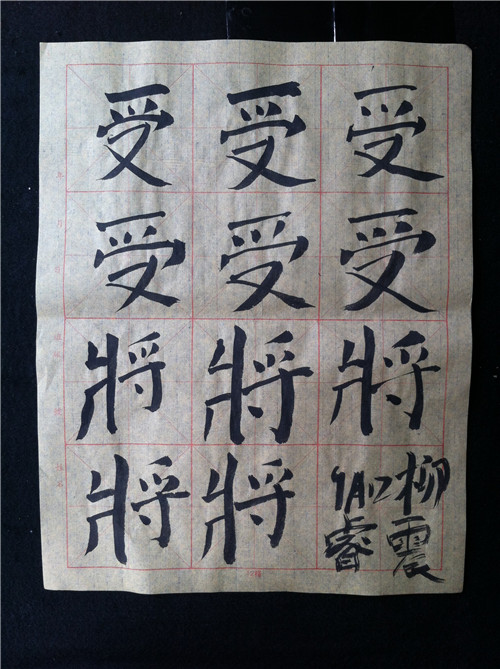 受受受
受受受
將將將
將將
柳震
伽睿